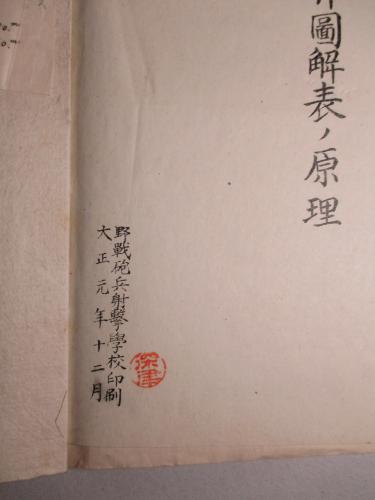 圖解表ノ原理
野戰砲兵射擊學校印刷
大正元年十二月
深津